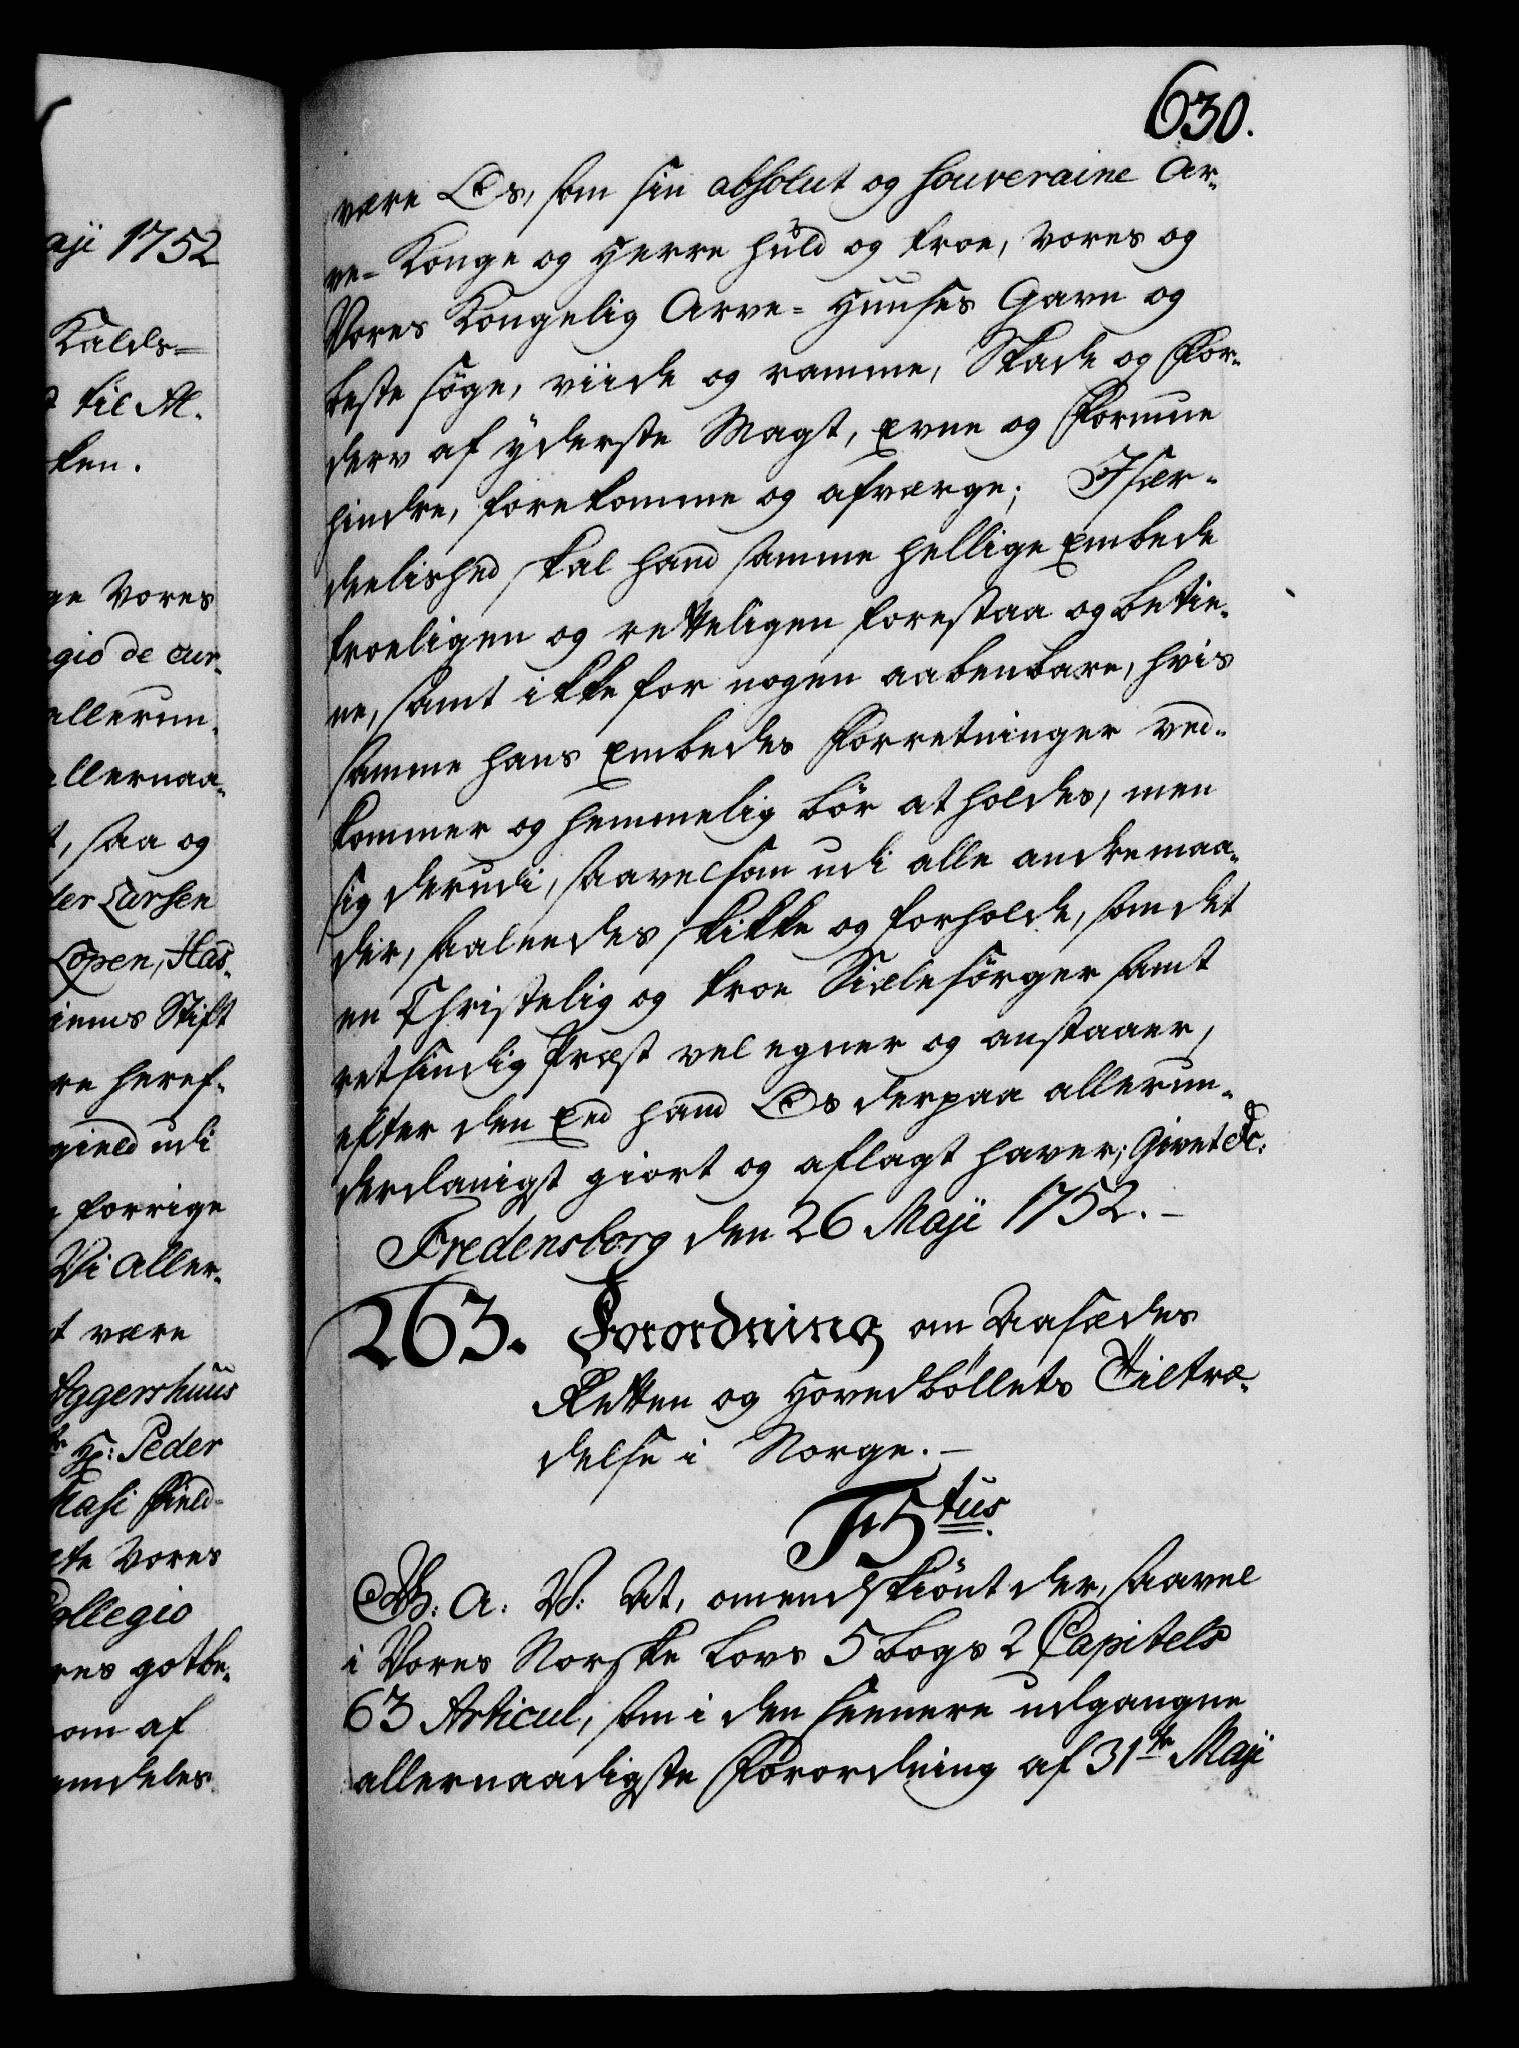 630.
være Os, som sin absolut og souveraine Ar-
ve-Konge og Herre huld og troe, vores og
Vores Kongelig Arve-Huuses Gavn og
beste søge, viide og ramme, Skade og For-
derv af yderste Magt, Evne og Formue
hindre, forekomme og afværge; Især-
deelished skal hand samme hellige Embede
troeligen og retteligen forestaa og betie-
ne, samt ikke for nogen aabenbare, hvis
samme hans Embedes Forretninger ved-
kommer og hemmelig bør at holdes, men
sig derudi, saavelsom udi alle andre maa-
der, saaledes skikke og forholde, som det
en Christelig og troe Siælesørger samt
retsindig Præst vel egner og anstaaer,
efter den Eed hand Os derpaa allerun-
derdanigst giort og aflagt haver; Givet &c:
Fredensborg den 26 Maji 1752.-
263. Forordning om Aasædes
Retten og Hovedbøllets Tiltræ-
delse i Norge.-
F5tus
G: A: V: At, omendskiønt der, saavel
i Vores Norske Lovs 5 bogs 2 Capitels
63 Articul, som i den seenere udgangne
allernaadigste Forordning af 31te Maji
aji 1752
Kalds-
til Al.
ken.
ge Vores
gio de cur-
allerun-
allernaa-
t, saa og
der Larsen
Lopen, Has-
iems Stift
re heref-
gield udi
forrige
Vi Aller-
t være
Aggershuus
Hr: Peder
Field-
te Vores
Collegio
res gotbe-
om af
emdeles